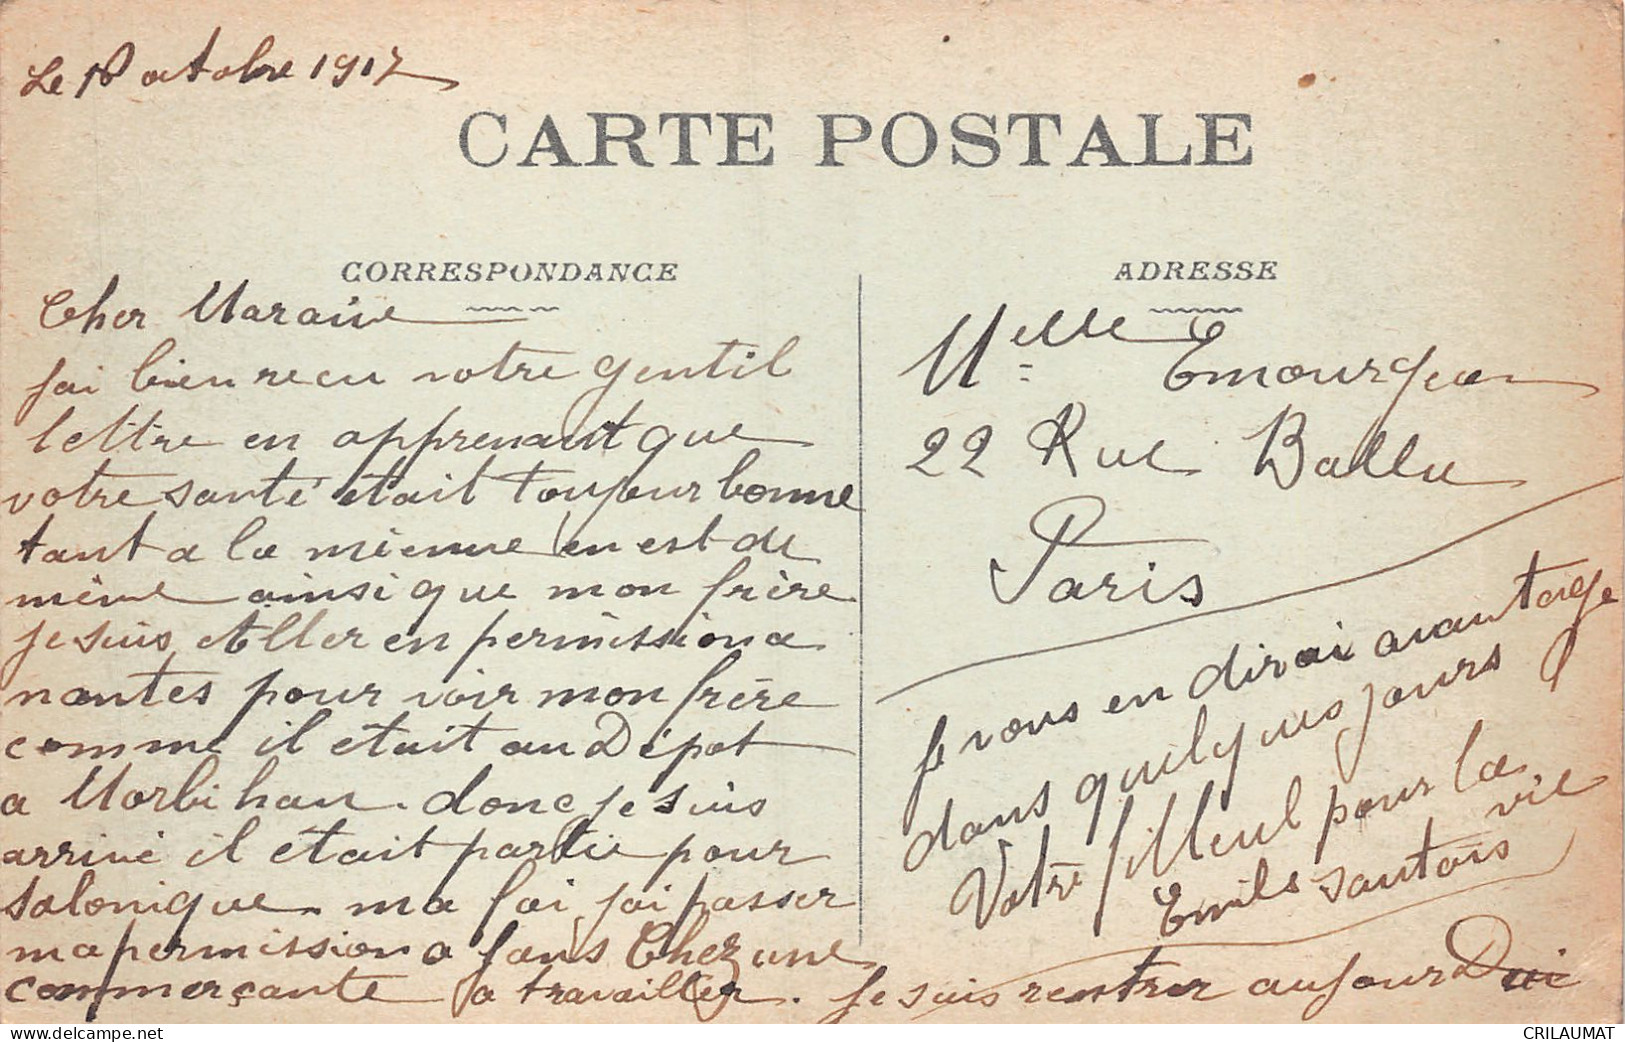 Le 18 octobre 1917
CARTE POSTALE
CORRESPONDANCE
Cher Maraine
jai bien recu votre gentil
lettre en apprenant que
votre santé était toujour bonne
tant a la mienne en est de
même ainsi que mon frère
je suis Aller en permission a
nantes pour voir mon frère
comme il était au Dépot
a Morbihan. donc je suis
arrivé il était partie pour
salonique. ma foi jai passer
ma permission a fans Chez une
commerçante a travailler. je suis rentrer aujourDui
ADRESSE
Melle Emourgeon
22 Rue Ballu
Paris
je vous en dirai avantage
dans quelques jours
Votre filleul pour la vie
Emile santois
delcampe.net
CRILAUMAT